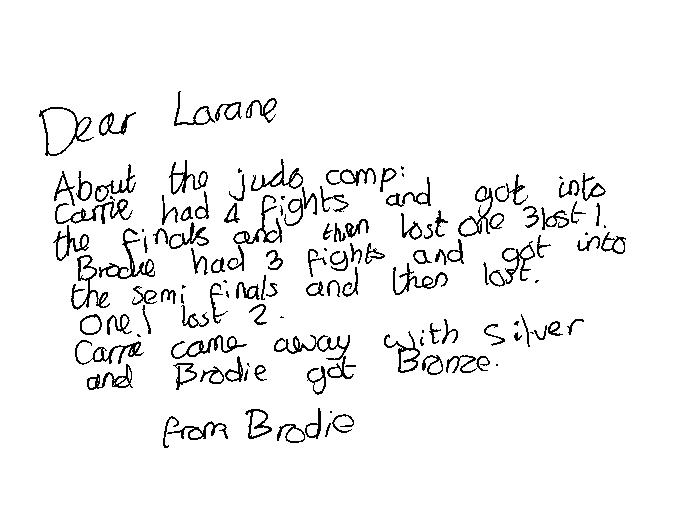 Dear Larane
About the judo comp:
Carrie had 4 fights and got into
the finals and then lost one 3 lost 1.
Brodie had 3 fights and got into
the semi finals and then lost.
One 1 lost 2.
Carrie came away with silver
and Brodie got Bronze.
from Brodie